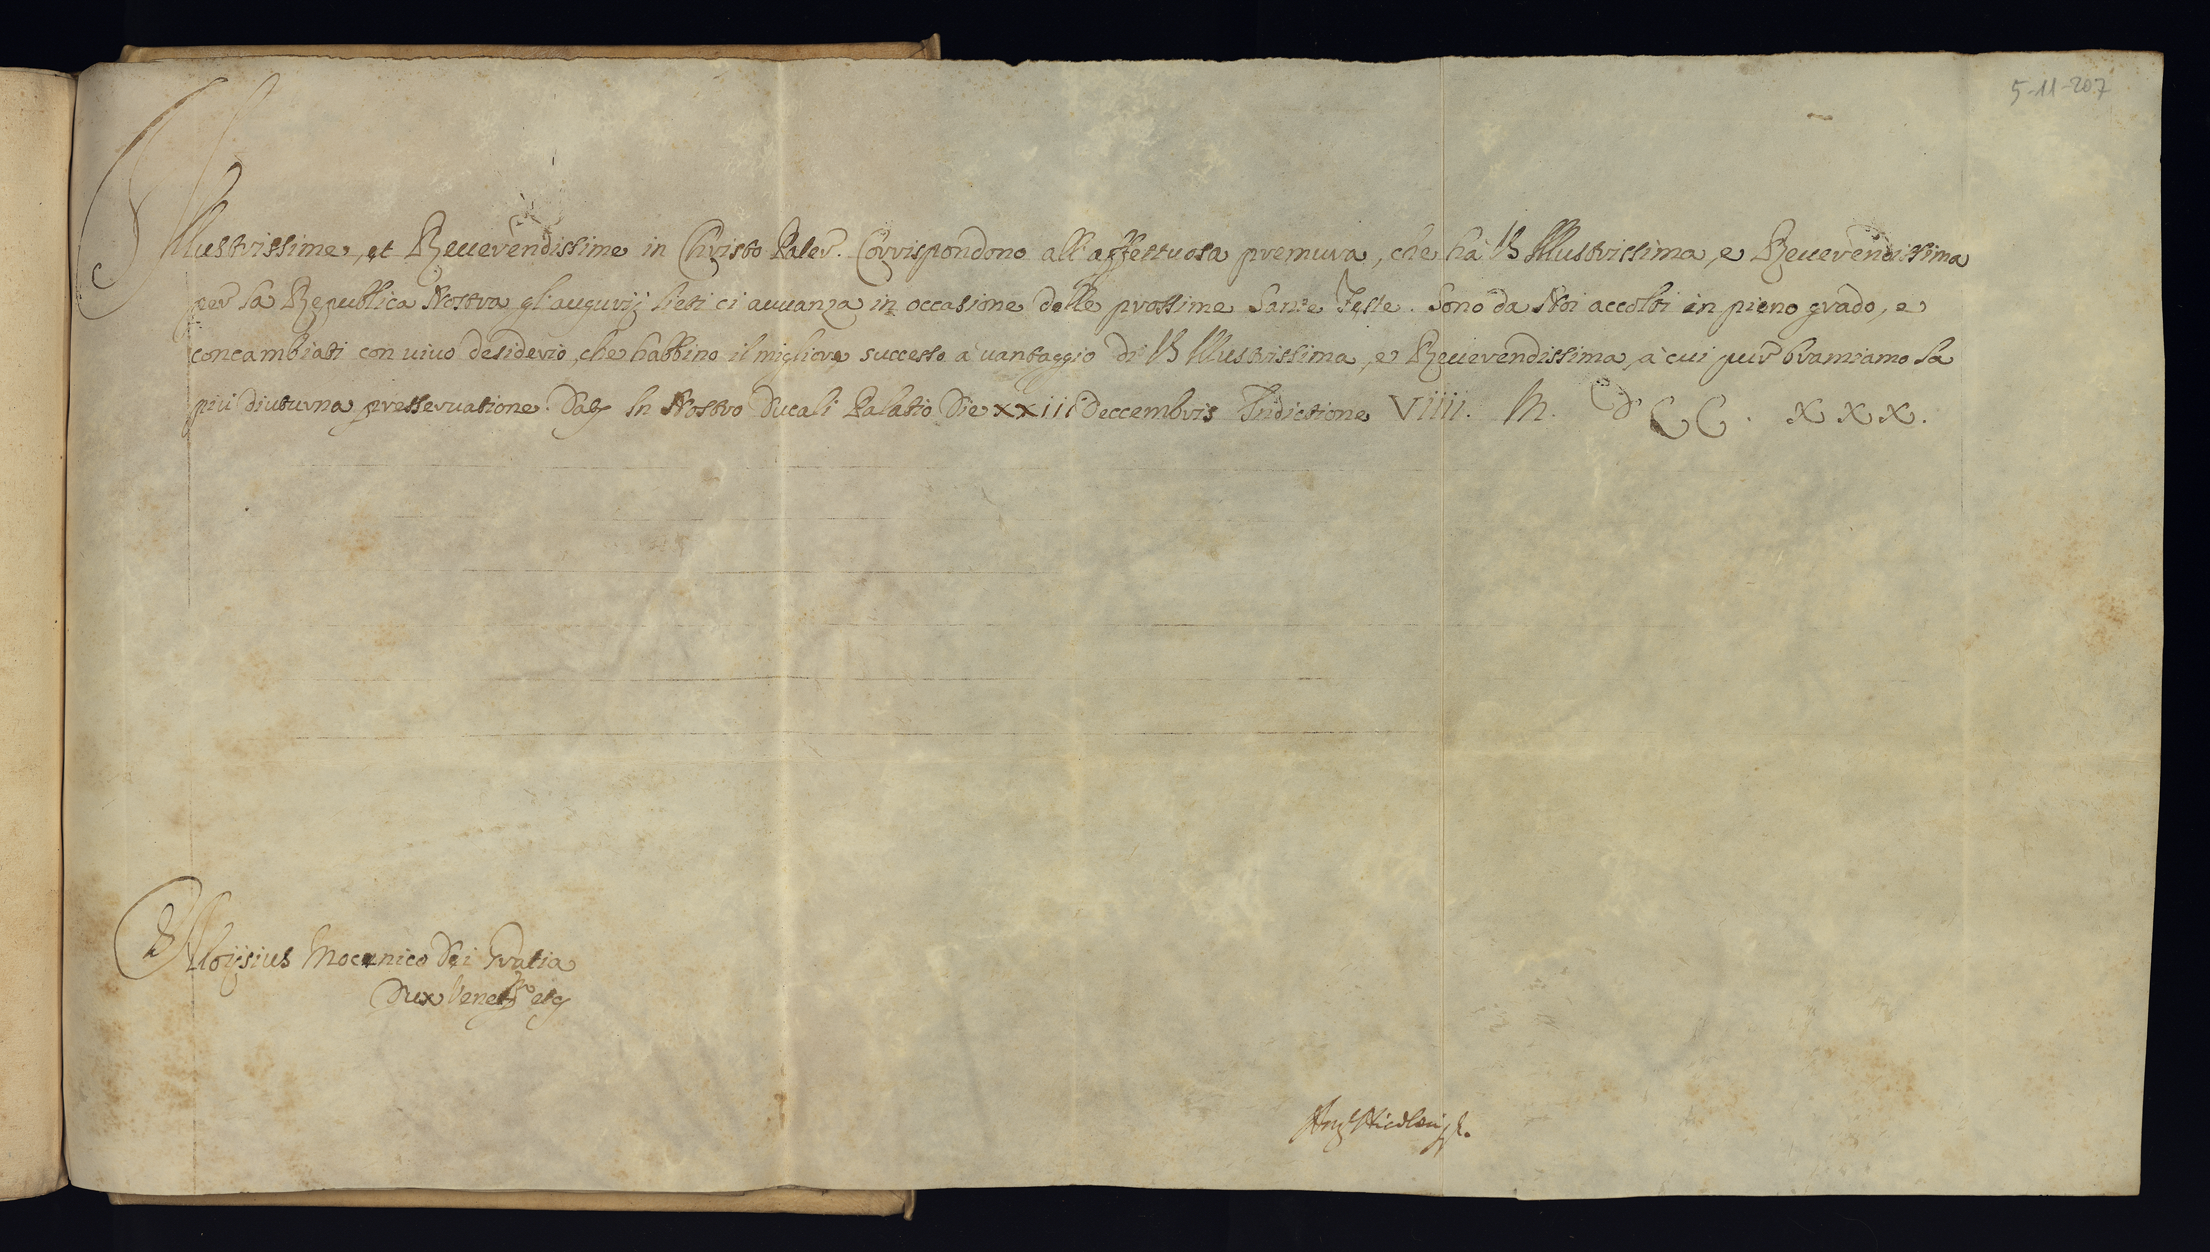 5-11-207
Illustrissime, et Reuerendissime in Christo Pater. Corrispondono all' affettuosa premura, che hà V. S. Illustrissima, e Reuerendissima
per la Republica Nostra gl' augurij lieti ci auuanza in occasione delle prossime Sante Feste. Sono da Noi accolti in pieno grado, e
concambiati con uiuo desiderio, che habbino il migliore successo à uantaggio di V. S. Illustrissima, e Reuerendissima, à cui pur bramiamo la
più diuturna presseruatione. Dat: In Nostro Ducali Palatio Die XXIII Deccembris Indictione VIIII. M. D CC. XXX.
Aloysius Mocenico Dei Gratia
Dux Venet: etc